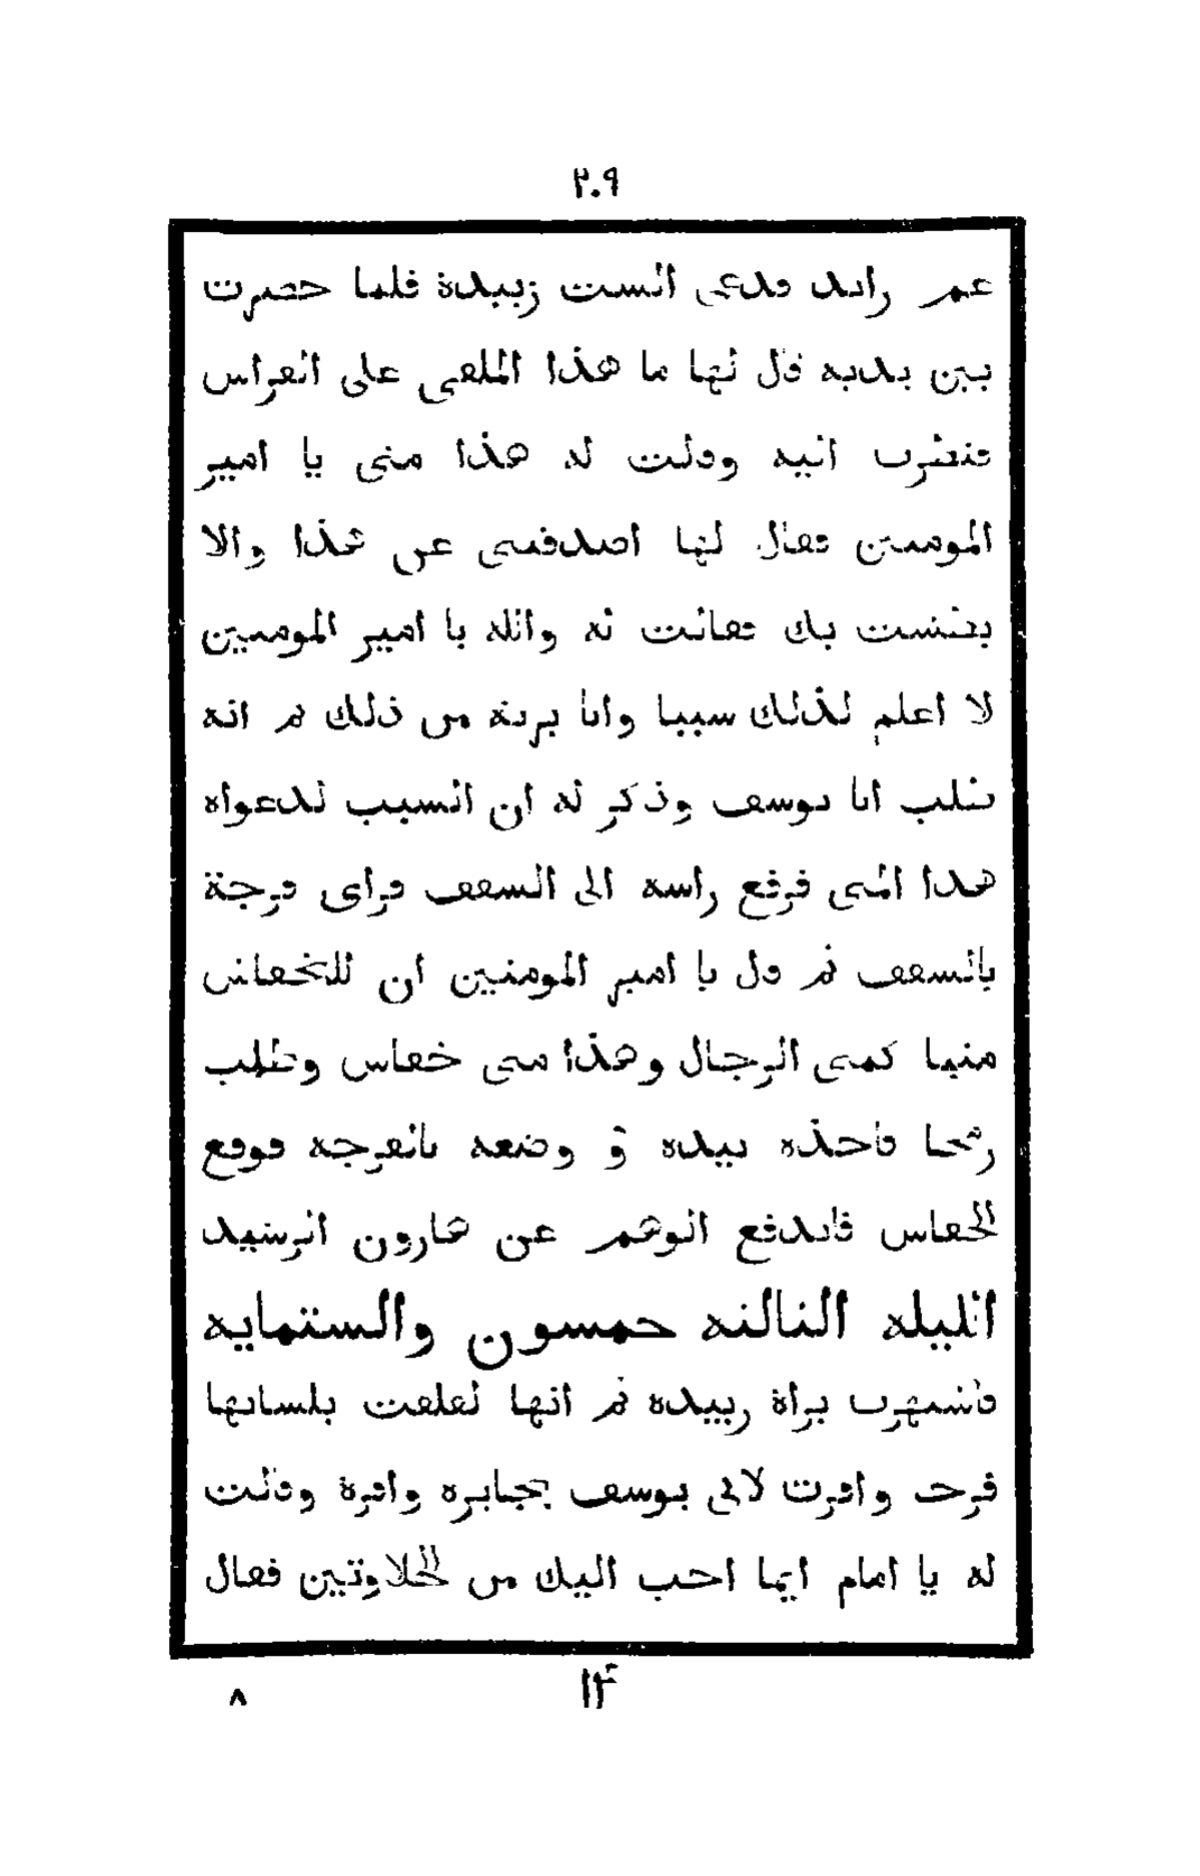 ٢٠٩
غم زايد فدعى الست زبيدة فلما حضرت
بين يديه قال لها ما هذا الملقى على الفراش
فنظرت اليه وقالت له هذا منى يا امير
المومنين فقال لها اصدقينى عن هذا والا
بطشت بك فقالت له والله يا امير المومنين
لا اعلم لذلك سببا وانا برية من ذلك ثم انه
طلب ابا يوسف وذكر له ان السبب لدعواه
هذا المنى فرفع راسه الى السقف فراى فرجة
بالسقف ثم قال يا امير المومنين ان للخفاش
منيا كمنى الرجال وهذا منى خفاش وطلب
رمحا فاخذه بيده و وضعه بالفرجة فوقع
الخفاش فاندفع الوهم عن هارون الرشيد
الليلة الثالثة خمسون والستماية
فاشتهرت براة زبيدة ثم انها لعلعت بلسانها
فرحت وامرت لابى يوسف بجايزة وافرة وقالت
له يا امام ايما احب اليك من الحلاوتين فقال
١٤
٨